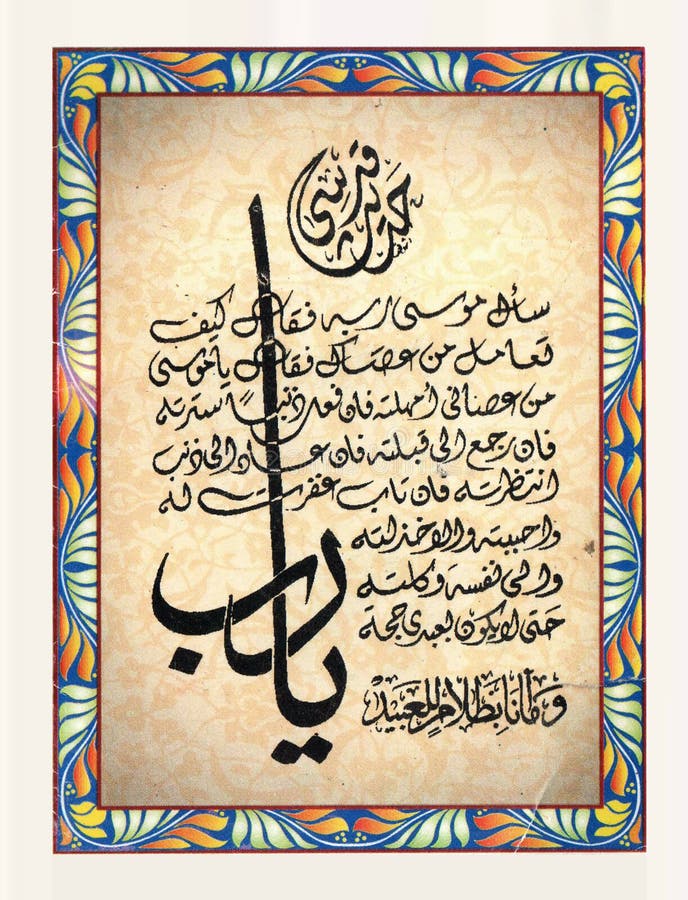 حديث قدسي
سأل موسى ربه فقال كيف
تعامل من عصاك فقال يا موسى
من عصاني أمهلته فان فعل ذنباً سترته
فان رجع الى قبلته فان عاد الى ذنب
انتظرته فان تاب غفرت له
واحببته والا خذلته
والى نفسه وكلته
حتى لا يكون لعبدي حجة
وَمَا أنَا بِظَلاَّمٍ لِلعَبيدْ
يا رب